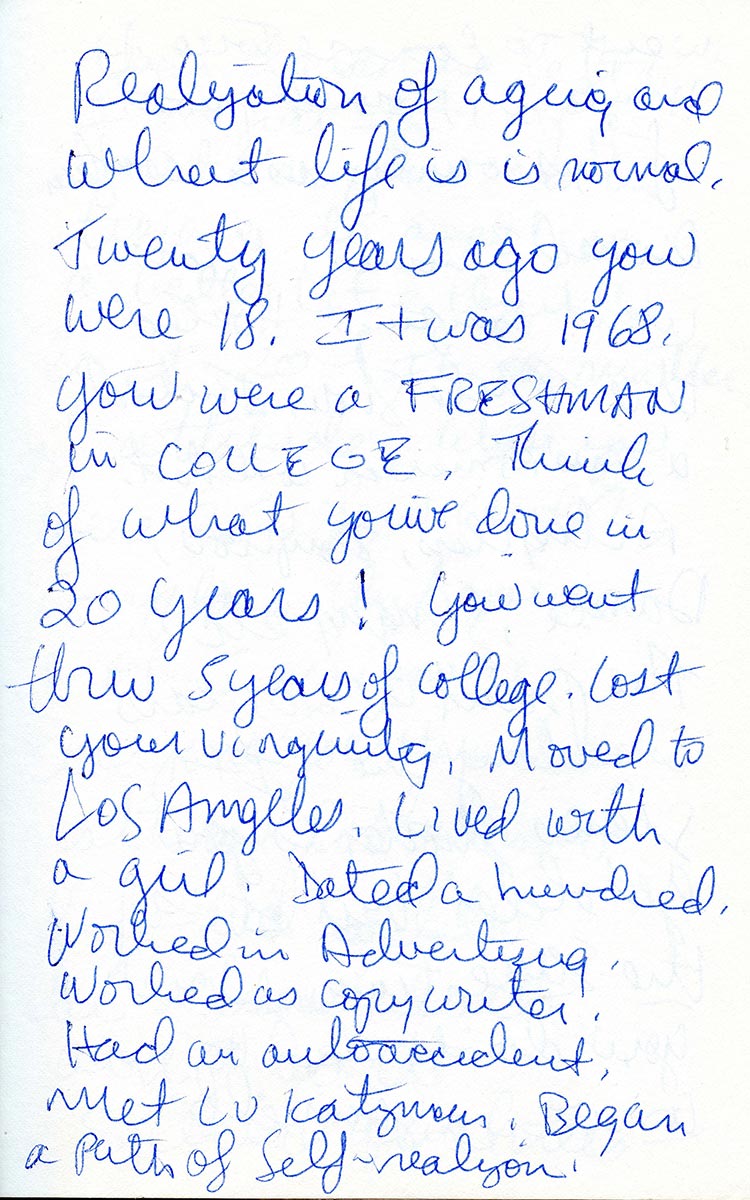 Realization of aging and
what life is is normal.
Twenty years ago you
were 18. It was 1968.
You were a FRESHMAN
in COLLEGE. Think
of what you've done in
20 years! You went
thru 5 years of college. Lost
your virginity. Moved to
Los Angeles. Lived with
a girl. Dated a hundred.
Worked in Advertising.
Worked as copywriter.
Had an auto accident.
Met Katzman. Began
a path of Self-